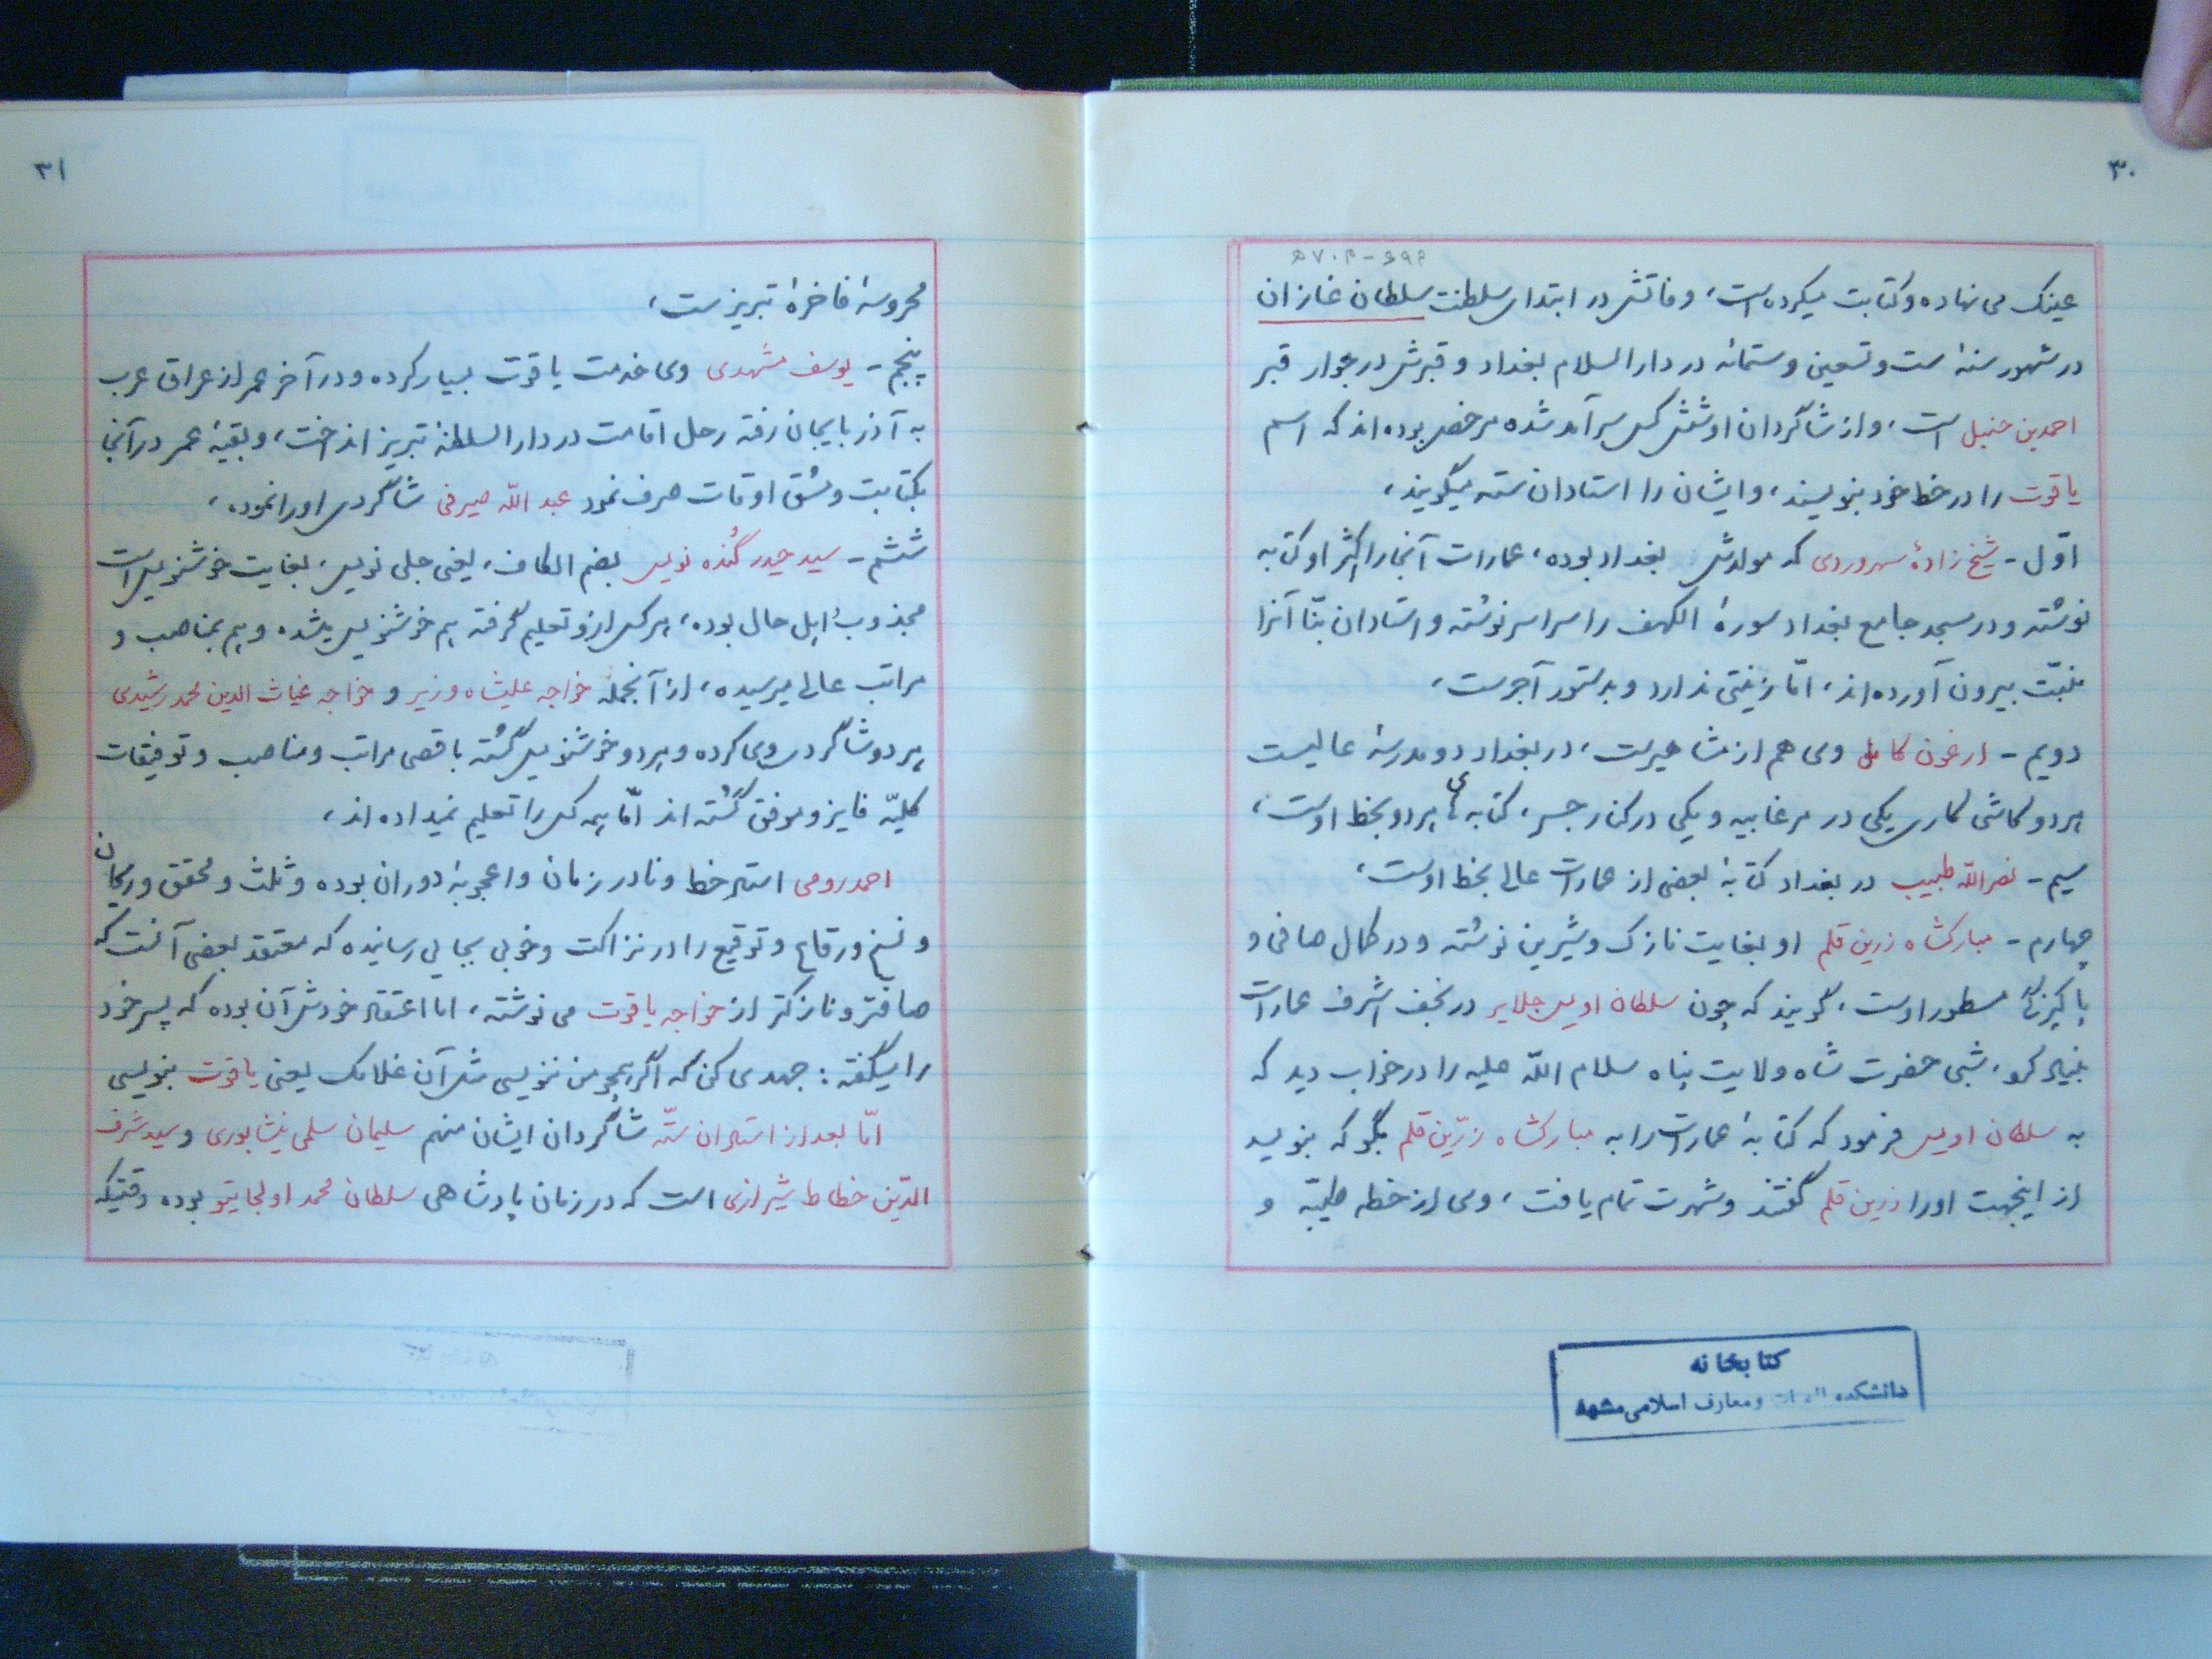 ۳۰
۶۹۴-۷۰۳ه
عینک می نهاده و کتابت میکرده است، وفاتش در ابتدای سلطنت سلطان غازان
در شهور سنهٔ ست و تسعین و ستمائه در دار السلام بغداد و قبرش در جوار قبر
احمد بن حنبل است، و از شاگردان او شش کس سرآمد شده مرخص بوده اند که اسم
یاقوت را در خط خود بنویسند، و ایشان را استادان سته میگویند،
اوّل - شیخ زادهٔ سهروردی که مولدش بغداد بوده، عمارات آنجا را اکثر او کتابه
نوشته و در مسجد جامع بغداد سورهٔ الکهف را سراسر نوشته و استادان بنّا آنرا
منبّت بیرون آورده اند، امّا زینتی ندارد و بدستور آجرست،
دویم - ارغون کاملی وی هم از مشاهیرست، در بغداد دو مدرسهٔ عالیست
هر دو کاشی کاری یکی در مرغابیه و یکی در کنار جسر، کتابه‌های هر دو بخط اوست،
سیم - نصر الله طبیب در بغداد کتابهٔ بعضی از عمارات عالی بخط اوست،
چهارم - مبارکشاه زرین قلم او بغایت نازک و شیرین نوشته و در کمال صافی و
پاکیزگی سطور اوست، گویند که چون سلطان اویس جلایر در نجف اشرف عمارات
بنیاد کرد، شبی حضرت شاه ولایت پناه سلام اللّه علیه را در خواب دید که
به سلطان اویس فرمود که کتابهٔ عمارات را به مبارکشاه زرّین قلم بگو که بنویسد
از اینجهت او را زرین قلم گفتند و شهرت تمام یافت، وی از خطه طیبّه و
کتابخانه
دانشکده الهیات و معارف اسلامی مشهد
۳۱
محروسهٔ فاخرهٔ تبریزست،
پنجم - یوسف مشهدی وی خدمت یاقوت بسیار کرده و در آخر عمر از عراق عرب
به آذربایجان رفته رحل اقامت در دار السلطنهٔ تبریز انداخت، و بقیهٔ عمر در آنجا
بکتابت و مشق اوقات صرف نمود عبد اللّه صیرفی شاگردی او را نموده،
ششم - سید حیدر گُنده نویس بضم الکاف، یعنی جلی نویس، بغایت خوشنویس است
مجذوب اهل حال بوده، هر کس از و تعلیم گرفته هم خوشنویس میشده و هم بمناصب و
مراتب عالی میرسیده، از آنجمله خواجه علیشاه وزیر و خواجه غیاث الدین محمد رشیدی
هر دو شاگردی وی کرده و هر دو خوشنویس گشته باقصی مراتب و مناصب و توفیقات
کلیّه فایز و موفق گشته اند امّا همه کس را تعلیم نمیداده اند،
احمد رومی استاد خط و نادر زمان و اعجوبهٔ دوران بوده و ثلث و محقق و ریحان
و نسخ و رقاع و توقیع را در نزاکت و خوبی بجایی رسانیده که معتقد بعضی آنست که
صافتر و نازکتر از خواجه یاقوت می نوشته، اما اعتقاد خودش آن بوده که پسر خود
را میگفته: جهدی کن که اگر همچو من ننویسی مثل آن غلامک یعنی یاقوت بنویسی
امّا بعد از استادان ستّه شاگردان ایشان منهم سلیمان سلمی نیشابوری و سید شرف
الدّین خطاط شیرازی است که در زمان پادشاهی سلطان محمد اولجایتو بوده وقتیکه